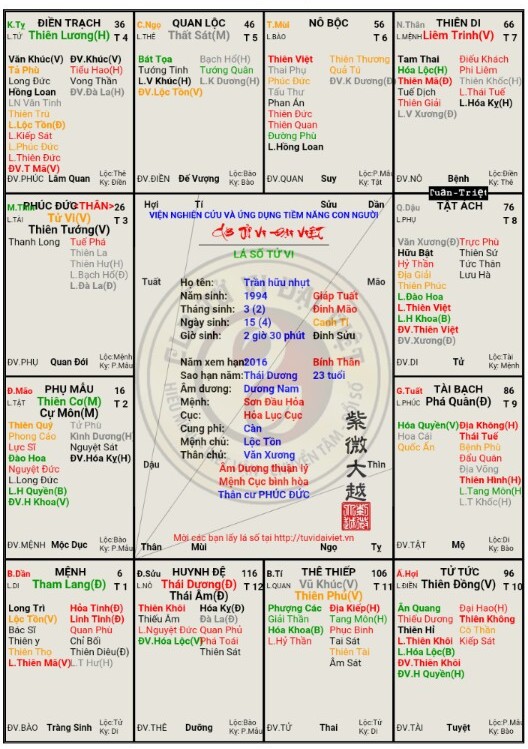 K.Tỵ ĐIỀN TRẠCH 36
L.TỬ Thiên Lương(H) T 4
Văn Khúc(V) ĐV.Khúc(V)
Tả Phù Tiểu Hao(H)
Long Đức Vong Thần
Hồng Loan ĐV.Đà La(H)
LN Văn Tinh
Thiên Trù
L.Lộc Tồn(Đ)
L.Kiếp Sát
L.Phúc Đức
L.Thiên Đức
ĐV.T Mã(V)
ĐV.PHÚC Lâm Quan Lộc:Thê Kỵ:Điền
C.Ngọ QUAN LỘC 46
L.THÊ Thất Sát(M) T 5
Bát Tọa Bạch Hổ(H)
Tướng Tinh Tướng Quân
L.V Khúc(H) L.K Dương(H)
ĐV.Lộc Tồn(V)
ĐV.ĐIỀN Đế Vượng Lộc:Bào Kỵ:Bào
T.Mùi NÔ BỘC 56
L.BÀO T 6
Thiên Việt Thiên Thương
Thai Phụ Quả Tú
Phúc Đức ĐV.K Dương(Đ)
Tấu Thư
Phan Án
Thiên Đức
Thiên Quan
Đường Phù
L.Hồng Loan
ĐV.QUAN Suy Lộc:P.Mẫu Kỵ:Tật
N.Thân THIÊN DI 66
L.MỆNH Liêm Trinh(V) T 7
Tam Thai Điếu Khách
Hóa Lộc(H) Phi Liêm
Thiên Mã(Đ) Thiên Khốc(H)
Tuế Dịch L.Thái Tuế
Thiên Giải L.Hóa Kỵ(H)
L.V Xương(Đ)
ĐV.NÔ Bệnh Lộc:Thê Kỵ:Điền
Tuần-Triệt
M.Thìn PHÚC ĐỨC <THÂN> 26
L.TÀI Tử Vi(V) T 3
Thiên Tướng(V)
Thanh Long Tuế Phá
Thiên La
Thiên Hư(H)
L.Bạch Hổ(Đ)
L.Đà La(Đ)
ĐV.PHỤ Quan Đới Lộc:Mệnh Kỵ:P.Mẫu
Hợi Tí Sửu Dần
VIỆN NGHIÊN CỨU VÀ ỨNG DỤNG TIỀM NĂNG CON NGƯỜI
LÁ SỐ TỬ VI
Tuất Mão
Họ tên: Trần hữu nhựt
Năm sinh: 1994 Giáp Tuất
Tháng sinh: 3 (2) Đinh Mão
Ngày sinh: 15 (4) Canh Tí
Giờ sinh: 2 giờ 30 phút Đinh Sửu
Năm xem hạn: 2016 Bính Thân
Sao hạn năm: Thái Dương 23 tuổi
Âm dương: Dương Nam
Mệnh: Sơn Đầu Hỏa
Cục: Hỏa Lục Cục
Cung phi: Càn
Mệnh chủ: Lộc Tồn
Thân chủ: Văn Xương
Dậu Thìn
Âm Dương thuận lý
Mệnh Cục bình hòa
Thân cư PHÚC ĐỨC
紫微大越
Mời các bạn lấy lá số tại http://tuvidaiviet.vn
Thân Mùi Ngọ Tỵ
Q.Dậu TẬT ÁCH 76
L.PHỤ T 8
Văn Xương(Đ) Trực Phù
Hữu Bật Thiên Sứ
Hỷ Thần Tức Thần
Địa Giải Lưu Hà
Thiên Phúc
L.Đào Hoa
L.Thiên Việt
L.H Khoa(B)
ĐV.Thiên Việt
ĐV.Xương(Đ)
ĐV.DI Tử Lộc:Tài Kỵ:Mệnh
Đ.Mão PHỤ MẪU 16
L.TẬT Thiên Cơ(M) T 2
Cự Môn(M)
Thiên Quý Tử Phù
Phong Cáo Kình Dương(H)
Lực Sĩ Nguyệt Sát
Đào Hoa ĐV.Hóa Kỵ(H)
Nguyệt Đức
L.Long Đức
L.H Quyền(B)
ĐV.H Khoa(V)
ĐV.MỆNH Mộc Dục Lộc:Bào Kỵ:P.Mẫu
G.Tuất TÀI BẠCH 86
L.PHÚC Phá Quân(Đ) T 9
Hóa Quyền(V) Địa Không(H)
Hoa Cái Thái Tuế
Quốc Ấn Bệnh Phù
Đẩu Quân
Địa Võng
Thiên Hình(H)
L.Tang Môn(H)
L.T Khốc(H)
ĐV.TẬT Mộ Lộc:Di Kỵ:Bào
B.Dần MỆNH 6
L.DI Tham Lang(Đ) T 1
Long Trì Hỏa Tinh(Đ)
Lộc Tồn(V) Linh Tinh(Đ)
Bác Sĩ Quan Phù
Thiên y Chỉ Bối
Thiên Thọ Thiên Diêu(Đ)
L.Thiên Mã(V) L.T Hư(H)
ĐV.BÀO Tràng Sinh Lộc:Tử Kỵ:Di
Đ.Sửu HUYNH ĐỆ 116
L.NÔ Thái Dương(Đ) T 12
Thái Âm(Đ)
Thiên Khôi Hóa Kỵ(Đ)
Thiếu Âm Đà La(Đ)
L.Nguyệt Đức Quan Phủ
ĐV.Hóa Lộc(V) Phá Toái
Thiên Sát
ĐV.THÊ Dưỡng Lộc:Bào Kỵ:P.Mẫu
B.Tí THÊ THIẾP 106
L.QUAN Vũ Khúc(V) T 11
Thiên Phủ(V)
Phượng Các Địa Kiếp(H)
Giải Thần Tang Môn(H)
Hóa Khoa(B) Phục Binh
L.Hỷ Thần Tai Sát
Thiên Tài
Âm Sát
ĐV.TỬ Thai Lộc:Bào Kỵ:P.Mẫu
Ấ.Hợi TỬ TỨC 96
L.ĐIỀN Thiên Đồng(V) T 10
Ân Quang Đại Hao(H)
Thiếu Dương Thiên Không
Thiên Hỉ Cô Thần
L.Thiên Khôi Kiếp Sát
L.Hóa Lộc(B)
ĐV.Thiên Khôi
ĐV.H Quyền(H)
ĐV.TÀI Tuyệt Lộc:Tử Kỵ:Di